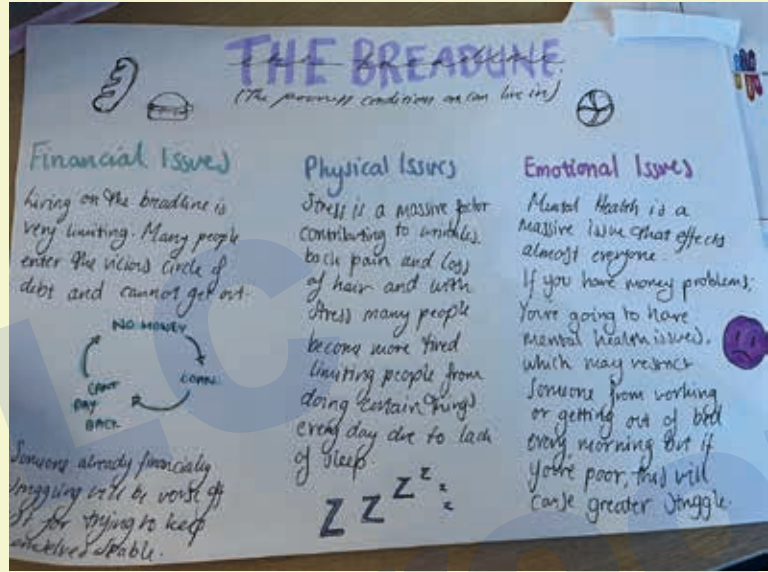 THE BREADLINE
(The poorness condition on can live in)
Financial Issues
Living on the breadline is
very limiting. Many people
enter the vicious circle of
debt and cannot get out.
NO MONEY
LOANS
CANT
PAY
BACK
Someone already financially
struggling will be worse off
for trying to keep
stable.
Physical Issues
Stress is a massive factor
contributing to wrinkles,
back pain and loss
of hair and with
stress many people
become more tired
limiting people from
doing certain things
every day due to lack
of sleep.
Z Z Z Z Z Z
Emotional Issues
Mental Health is a
massive issue that effects
almost everyone.
If you have money problems;
Youre going to have
mental health issues.
which may restrict
Someone from working
or getting out of bed
every morning but if
you're poor, this will
cause greater struggle.